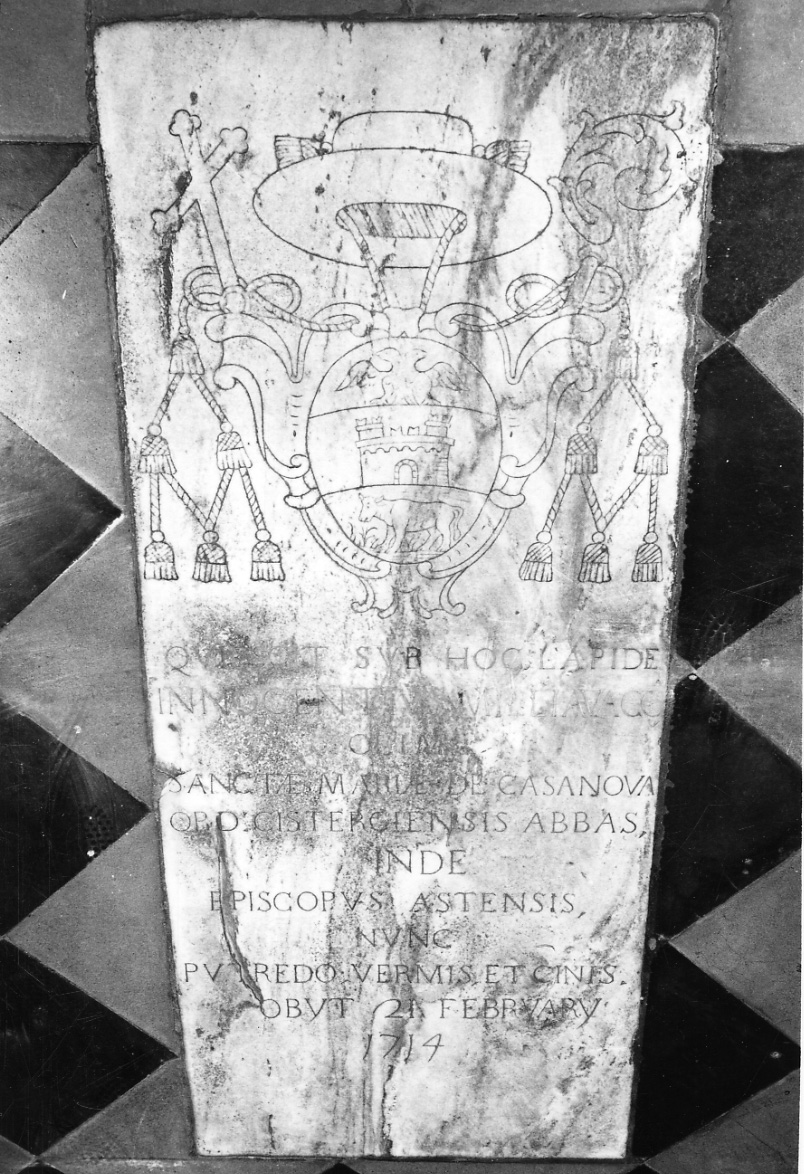 QVI SVB HOC LAPIDE
INNOCENTIVS MILLIAVACCA
OLIM
SANCTÆ MARIÆ DE CASANOVA
ORD. CISTERCIENSIS ABBAS,
INDE
EPISCOPVS ASTENSIS,
NVNC
PVTREDO VERMIS ET CINIS.
OBVIT 21 FEBRVARY
1714